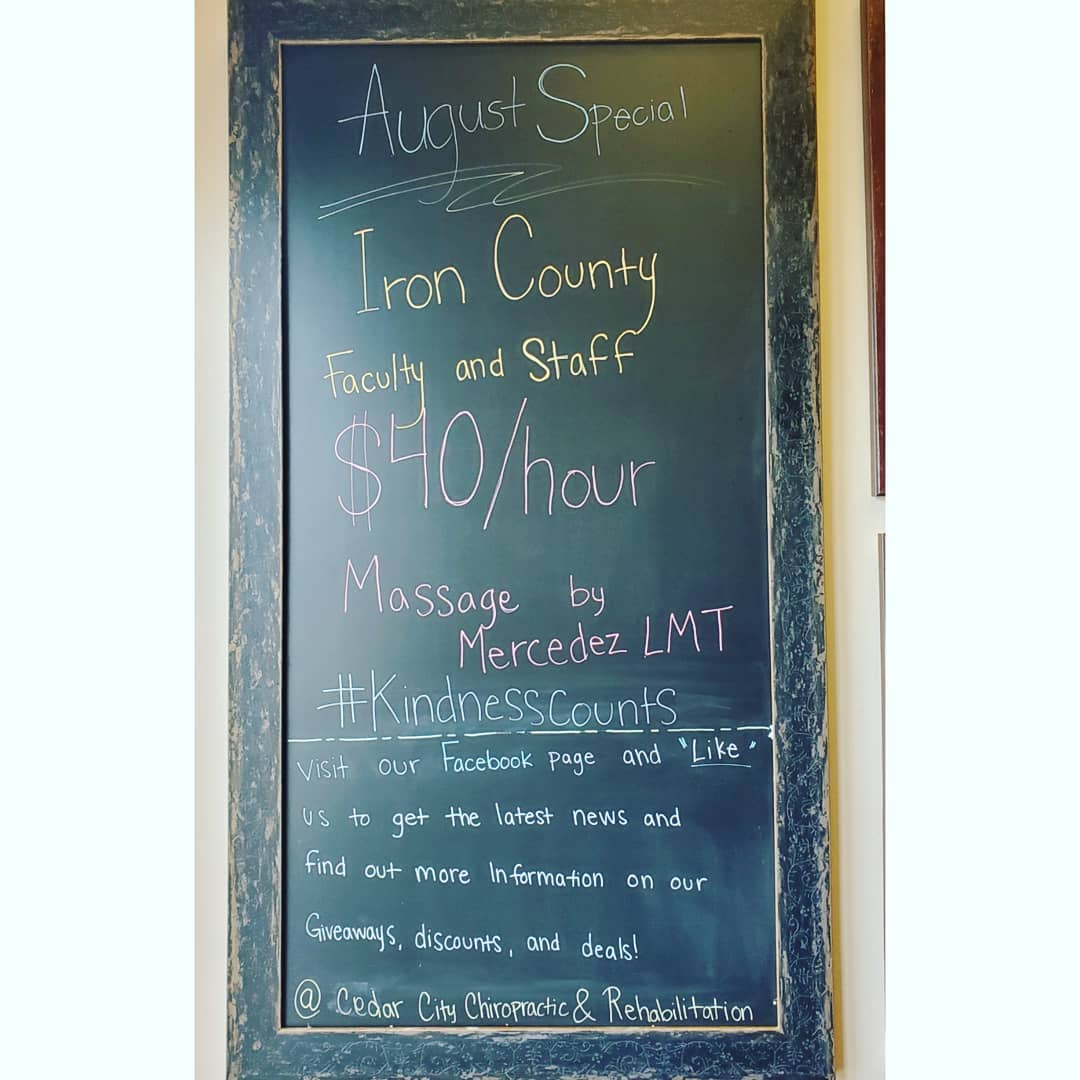 August Special
Iron County
Faculty and Staff
$40/hour
Massage by
Mercedez LMT
#KindnessCounts
Visit our Facebook page and "Like"
us to get the latest news and
find out more Information on our
Giveaways, discounts, and deals!
@ Cedar City Chiropractic & Rehabilitation